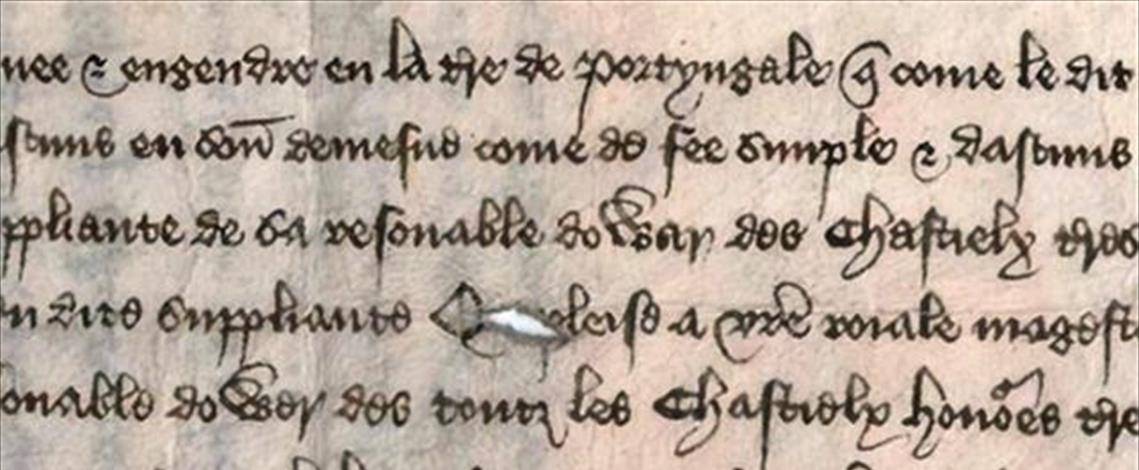 nee & engendre en la tre de Portyngale q come le dit
scuns en son demesne come de fee simple & dascuns
ppliante de sa resonable dowar des Chastielx tres
n dite suppliante pleise a vre roiale magest
onable dower des toutz les Chastielx honoes tre